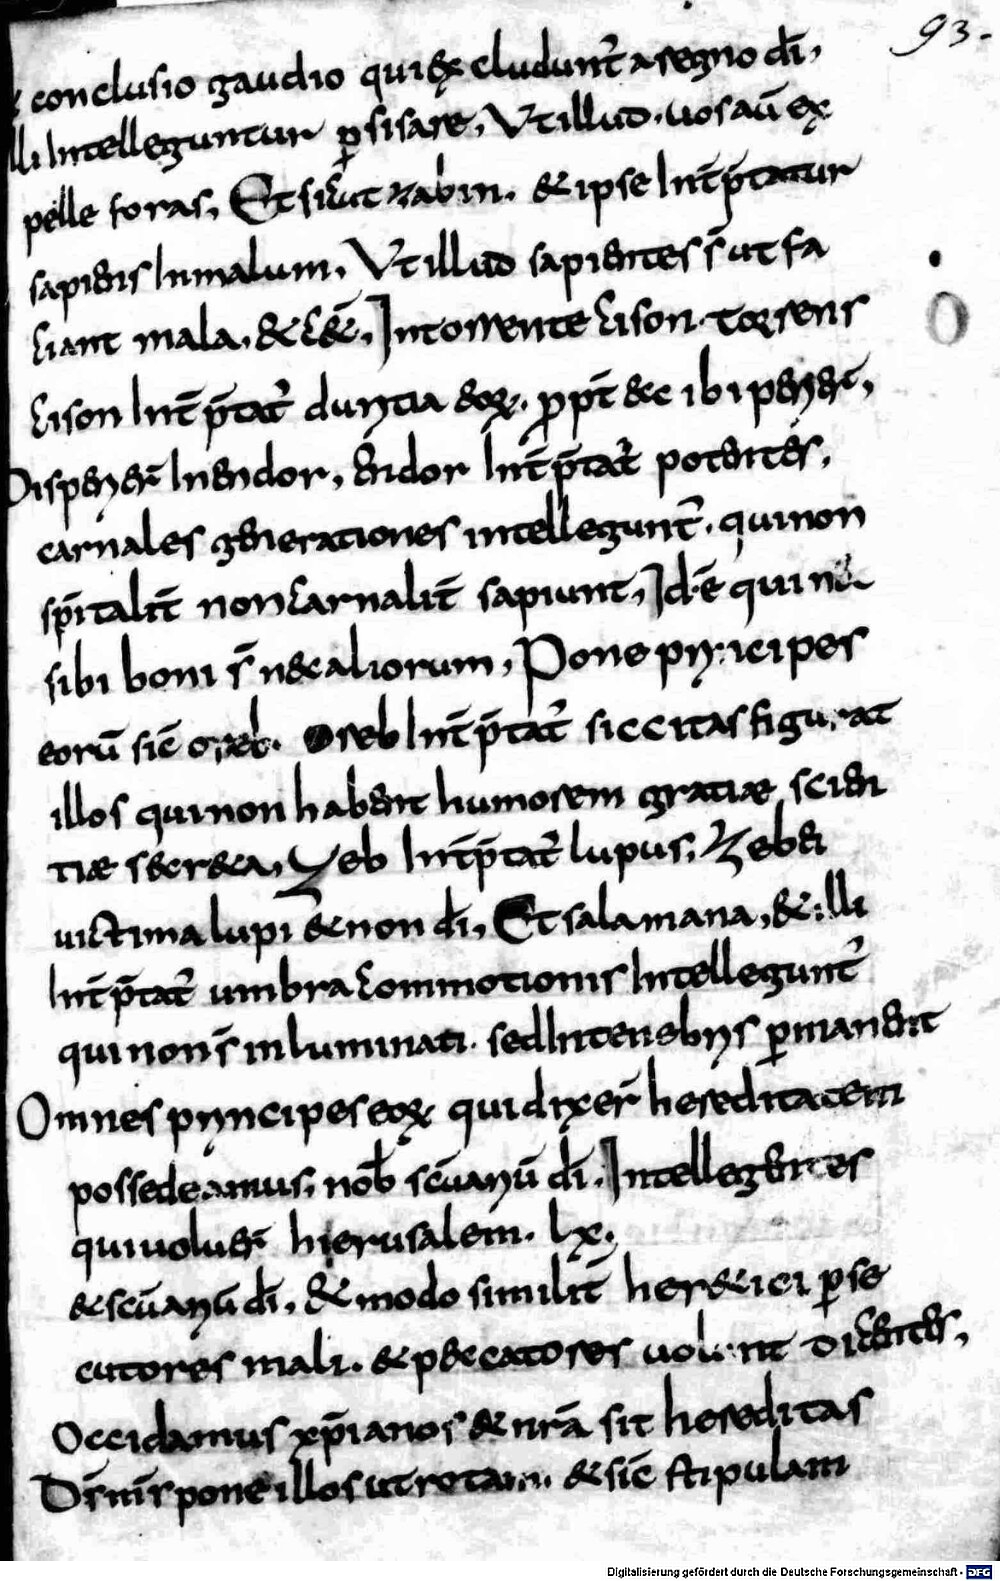 93.
conclusio gaudio qui excludunt̄ a regno dī,
illi Intelleguntur p̱ sisare, Ut illud. uos aū ex
pelle foras, Et sicut zabin. & ipse Int̄p̄tatur
sapiens In malum, Ut illud sapientes s̄ ut fa
ciant mala, & c&̄, In torrente cison. torrens
cison Int̄p̄tat̄ duritia eoꝝ. ꝓpt̄ & ibi perier̄,
Disperier̄ In endor, endor Int̄p̄tat̄ potentes,
carnales generationes intellegunt̄. qui non
sp̄italit̄ non carnalit̄ sapiunt, Id ē qui nec
sibi boni s̄ nec aliorum, Pone principes
eorū sic̄ oreb. Oreb Int̄p̄tat̄ siccitas figurat
illos qui non habent humorem gratiæ scien
tiæ secreta, Zeb Int̄p̄tat̄ lupus, Zebei
uictima lupi & non dī, Et salamana, & illi
Int̄p̄tat̄ umbra commotionis Intellegunt̄
qui non s̄ inluminati. sed In tenebris p̱manent
Omnes principes eoꝝ qui dixer̄ hereditatem
possedeamus, nob̄ sc̄uariū dī. Intellegentes
qui uoluer̄ hierusalem. lx.
& sc̄uariū dī, & modo similit̄ her&ici p̱se
cutores mali. & peccatores uolunt dicentes,
Occidamus xp̄ianos & nr̄a sit hereditas
Ds̄ ms̄ pone illos ut rotam. & sic̄ stipulam
Digitalisierung gefördert durch die Deutsche Forschungsgemeinschaft - DFG